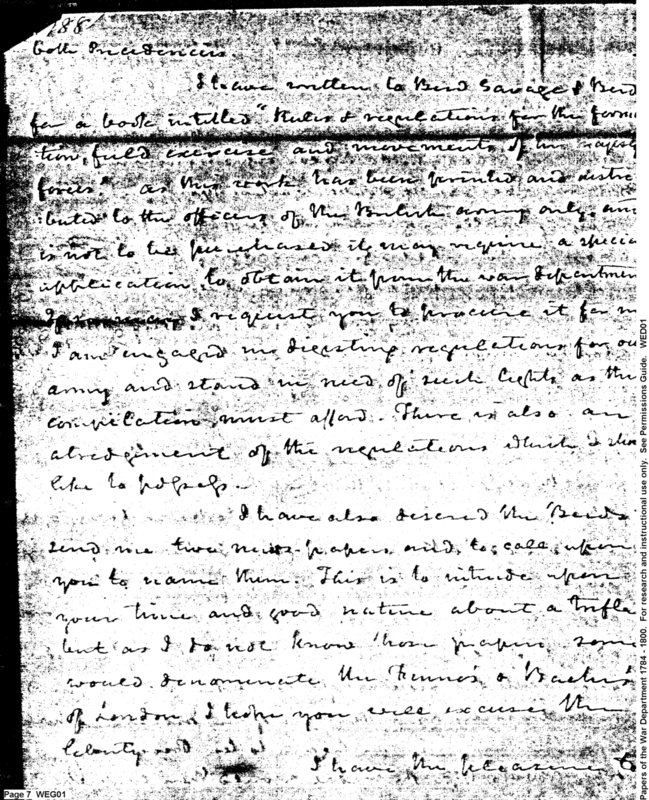 188
both Presidencies.
I have written to Bird Savage & Bird
for a book intitled "Rules & regulations for the forma
tion, field exercise and movements of his majesty
forces" as this work has been printed and distri
buted to the officers of the British army only and
is not to be purchased it may require a specia
application to obtain it from the war departmen
I request you to procure it for m
I am engaged in digesting regulations for ou
army and stand in need of such lights as this
compilation must afford. There is also an
abridgement of the regulations which I shou
like to possess.
I have also desired the Birds
send me two news-papers and to call upon
you to name them. This is to intrude upon
your time and good nature about a trifle
but as I do not know those papers some
would denominate the Fenno's & Bache's
of London I hope you will excuse the
liberty
I have the pleasure to
Page 7 WEG01
Papers of the War Department 1784 - 1800. For research and instructional use only. See Permissions Guide. WED01